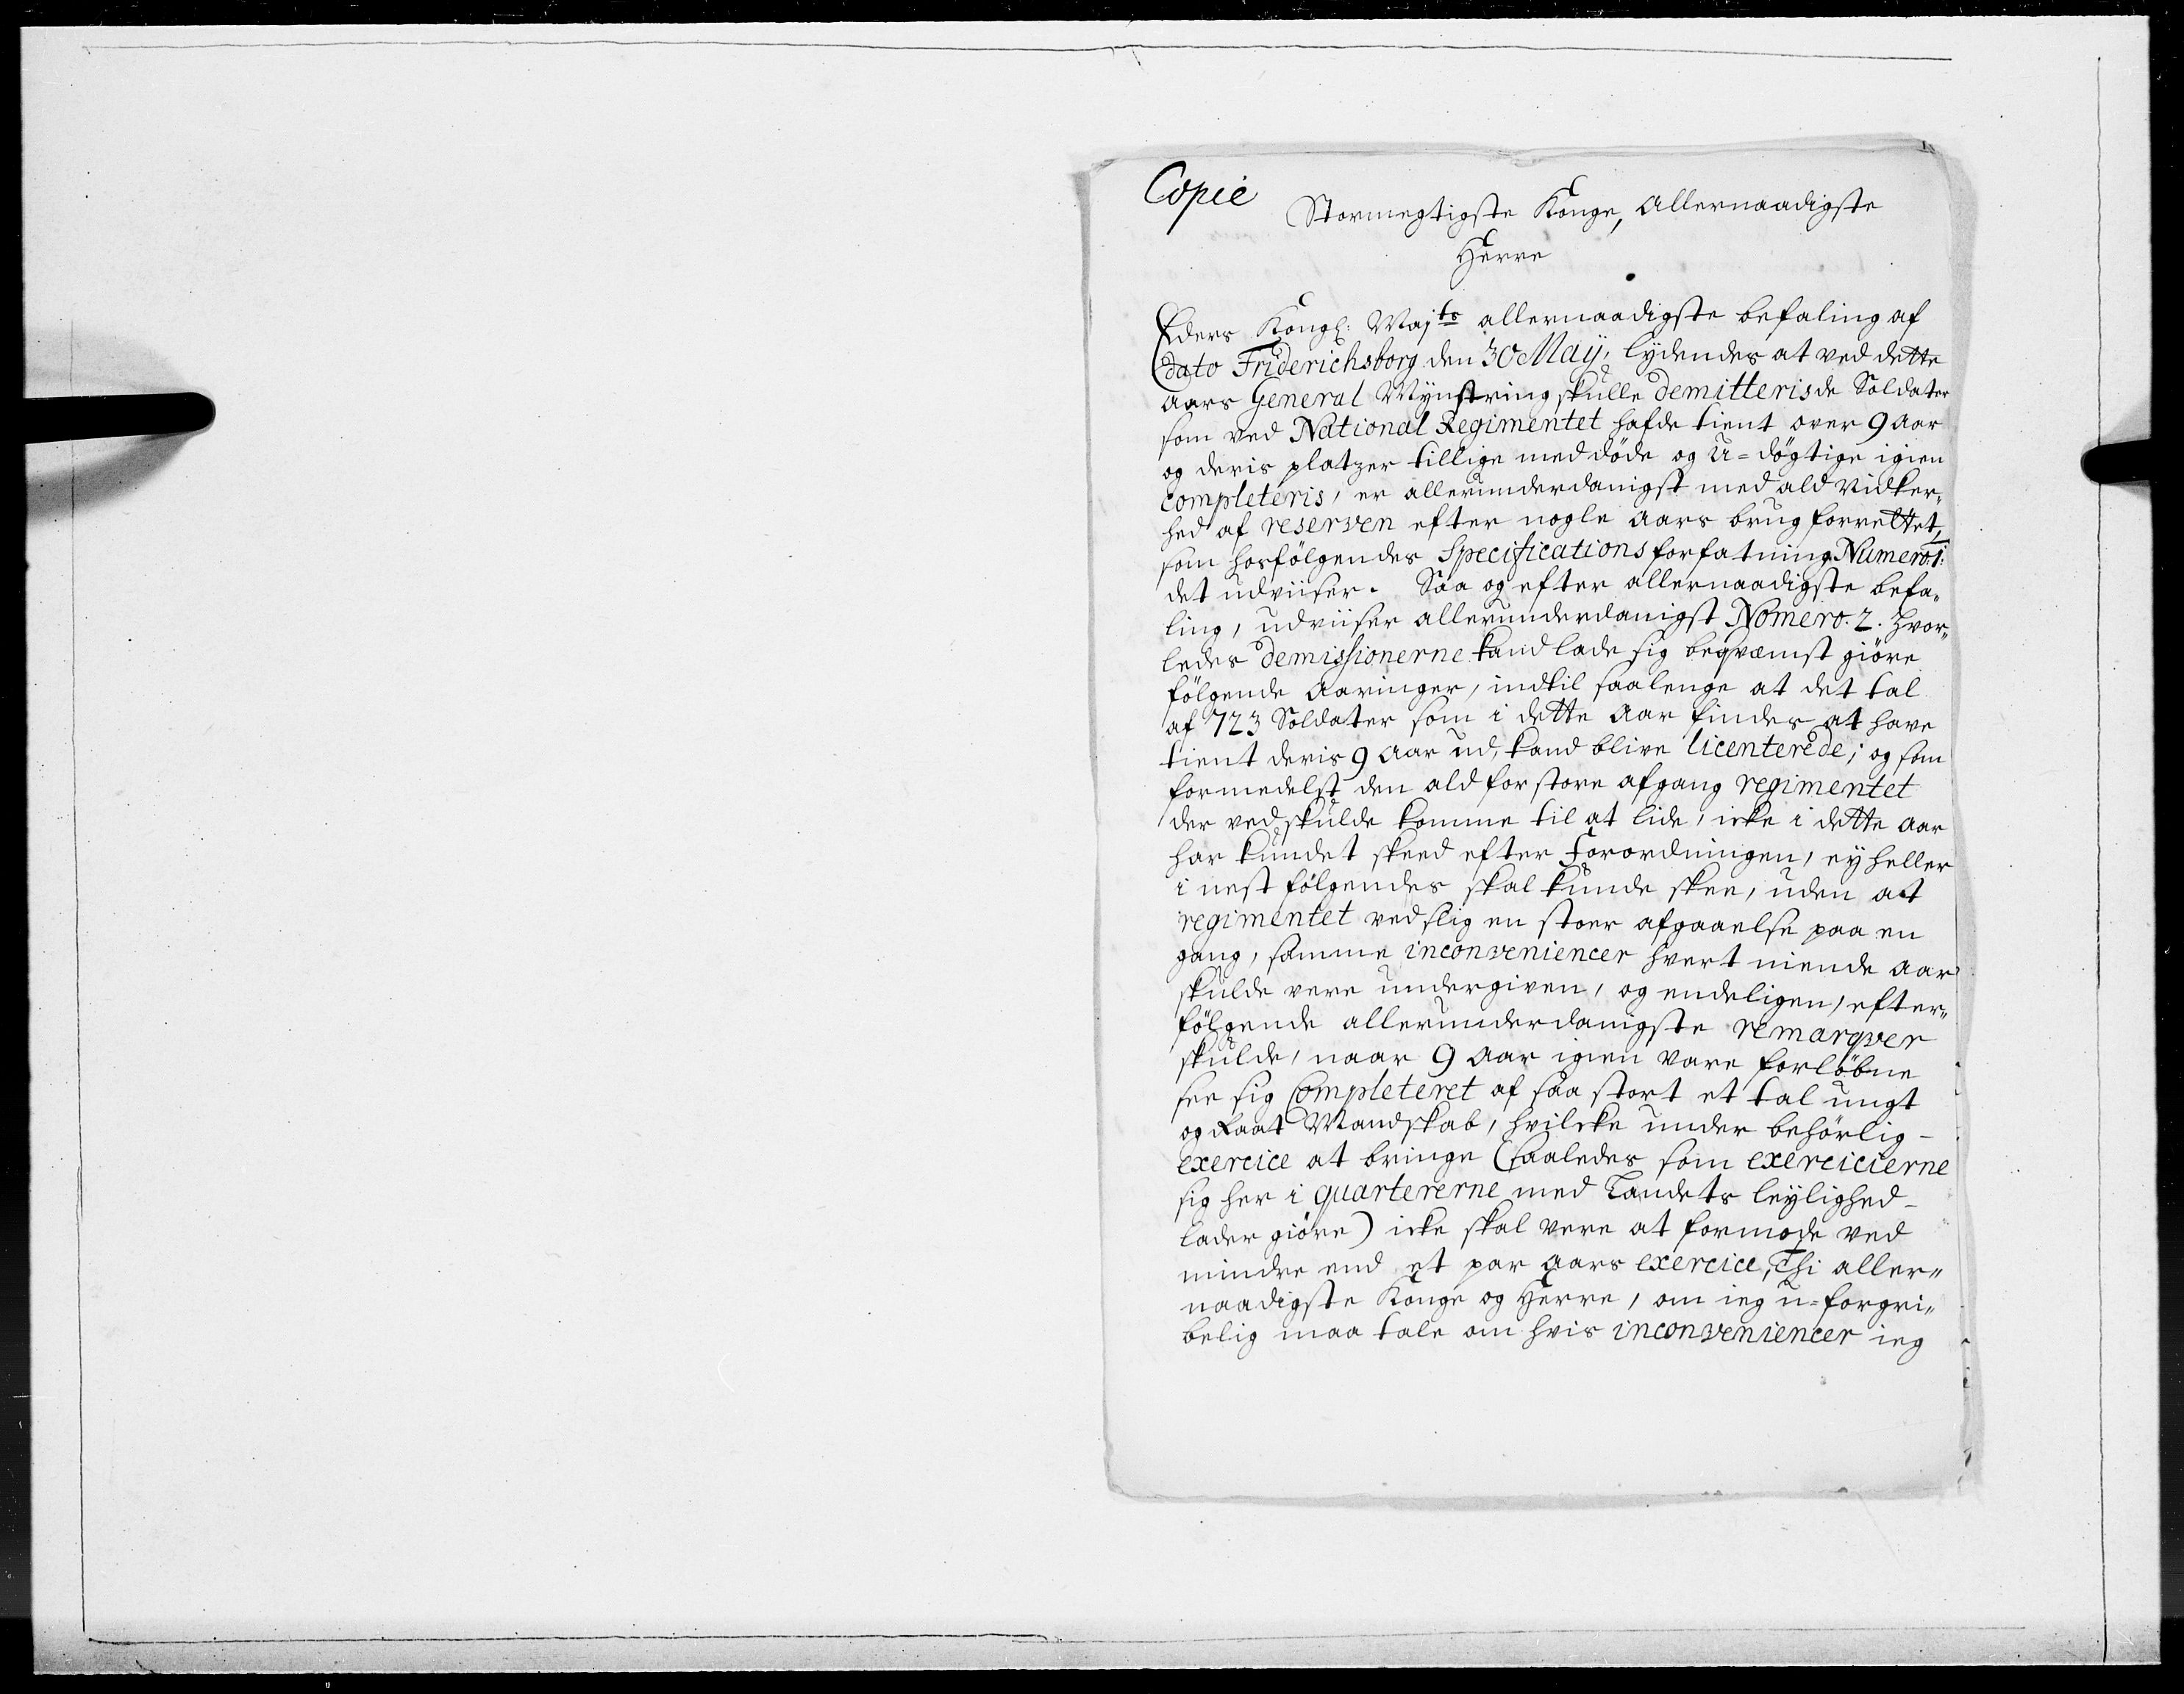 Copie
Stormegtigste Konge, Allernaadigste
Herre
Eders Kongl: Maj<sup>ts</sup> allernaadigste befaling af
dato Friderichsborg den 30 Maÿ, lydendes at ved dette
aars General Mynstring skulle demitteris de Soldater
som ved National Regimentet hafde tient over 9 aar
og deris platzer tillige med døde og u=døgtige igien
completeris, er allerunderdanigst med ald vidker„
hed af reserven efter nogle aars brug forrettet,
som hosfølgendes Specifications forfatning Numero. 1:
det udviiser. Saa og efter allernaadigste befa„
ling, udviiser allerunderdanigst Nomero. 2. Hvor„
ledes demissionerne kand lade sig beqvæmst giøre
følgende aaringer, indtil saalenge at det tal
af 723 Soldater som i dette aar findes at have
tient deris 9 aar ud, kand blive licenterede; og som
formedelst den ald for store afgang regimentet
der ved skulde komme til at lide, icke i dette aar
har kundet skeed efter Forordningen, ey heller
i nest følgendes skal kunde skee, uden at
regimentet ved slig en stoer afgaaelse paa en
gang, samme inconveniencer hvert niende aar
skulde vere undergiven, og endeligen, efter„
følgende allerunderdanigste remarqver
skulde, naar 9 aar igien vare forløbne
see sig Completeret af saa stort et tal ungt
og Raat Mandskab, hvilcke under behørlig -
exercice at bringe (saaledes som exercicierne
sig her i quartererne med Landets leylighed -
lader giøre) icke skal vere at formode ved
mindre end et par aars exercice, Thi aller„
naadigste Konge og Herre, om ieg u=forgri„
belig maa tale om hvis inconveniencer ieg